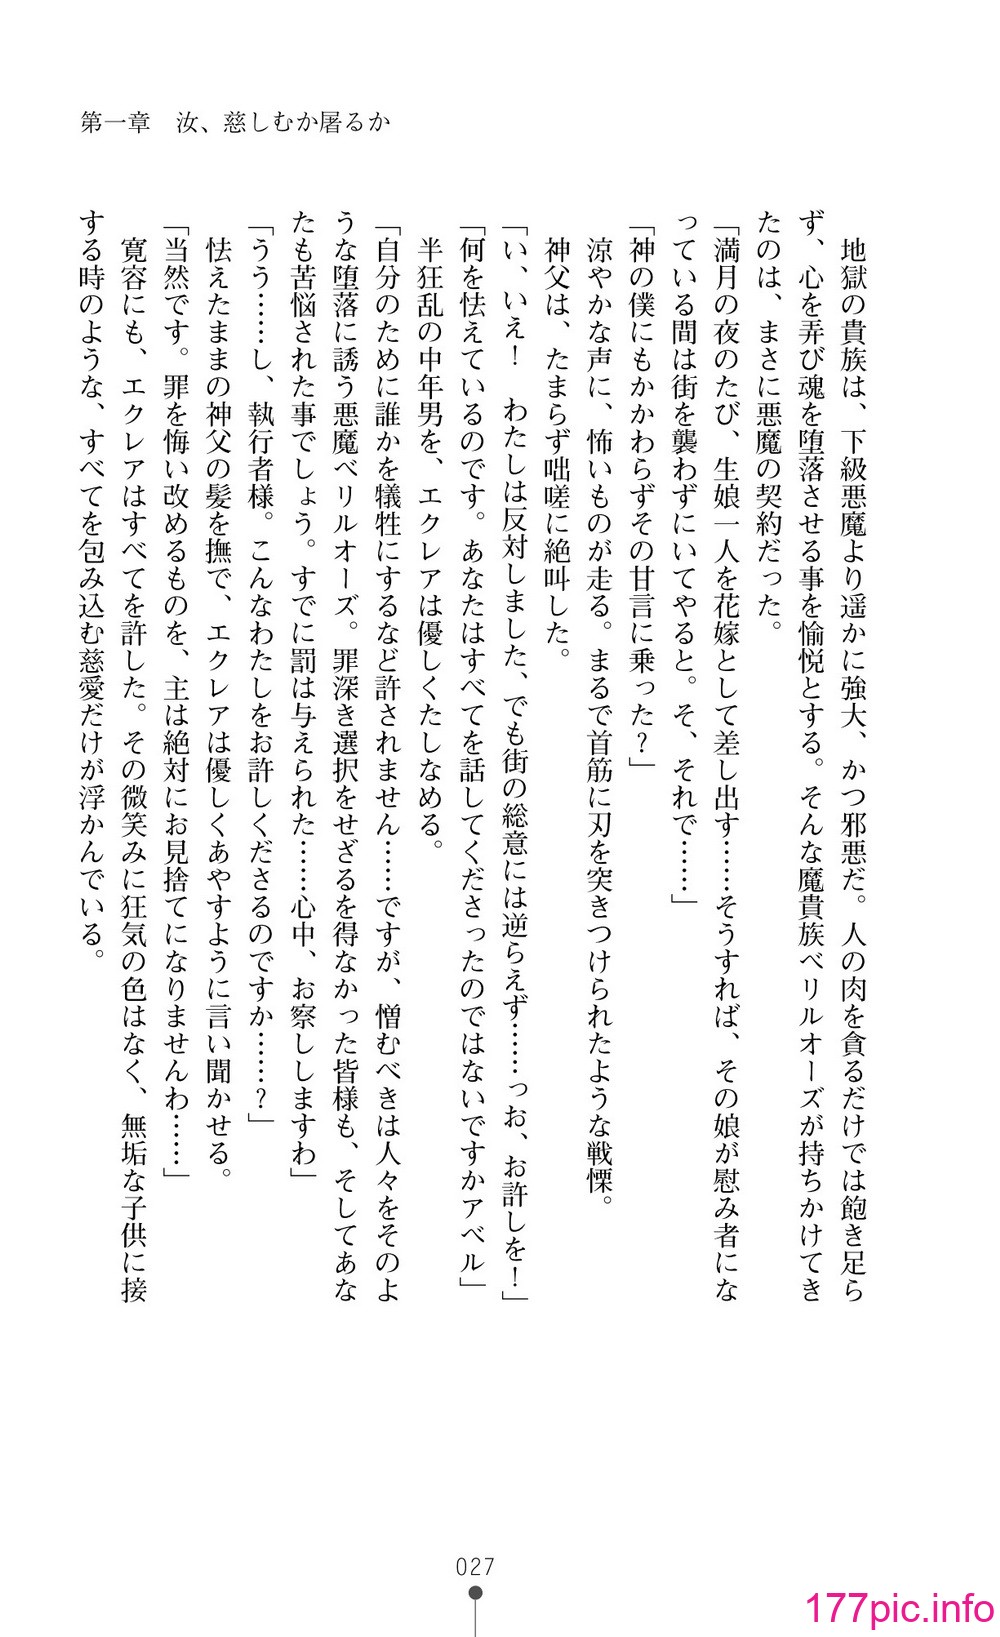 第一章　汝、慈しむか屠るか
　地獄の貴族は、下級悪魔より遥かに強大、かつ邪悪だ。人の肉を貪るだけでは飽き足ら
ず、心を弄び魂を堕落させる事を愉悦とする。そんな魔貴族ベリルオーズが持ちかけてき
たのは、まさに悪魔の契約だった。
「満月の夜のたび、生娘一人を花嫁として差し出す……そうすれば、その娘が慰み者にな
っている間は街を襲わずにいてやると。そ、それで……」
「神の僕にもかかわらずその甘言に乗った？」
　涼やかな声に、怖いものが走る。まるで首筋に刃を突きつけられたような戦慄。
　神父は、たまらず咄嗟に絶叫した。
「い、いえ！　わたしは反対しました、でも街の総意には逆らえず……っお、お許しを！」
「何を怯えているのです。あなたはすべてを話してくださったのではないですかアベル」
　半狂乱の中年男を、エクレアは優しくたしなめる。
「自分のために誰かを犠牲にするなど許されません……ですが、憎むべきは人々をそのよ
うな堕落に誘う悪魔ベリルオーズ。罪深き選択をせざるを得なかった皆様も、そしてあな
たも苦悩された事でしょう。すでに罰は与えられた……心中、お察ししますわ」
「うう……し、執行者様。こんなわたしをお許しくださるのですか……？」
　怯えたままの神父の髪を撫で、エクレアは優しくあやすように言い聞かせる。
「当然です。罪を悔い改めるものを、主は絶対にお見捨てになりませんわ……」
　寛容にも、エクレアはすべてを許した。その微笑みに狂気の色はなく、無垢な子供に接
する時のような、すべてを包み込む慈愛だけが浮かんでいる。
027
177pic.info